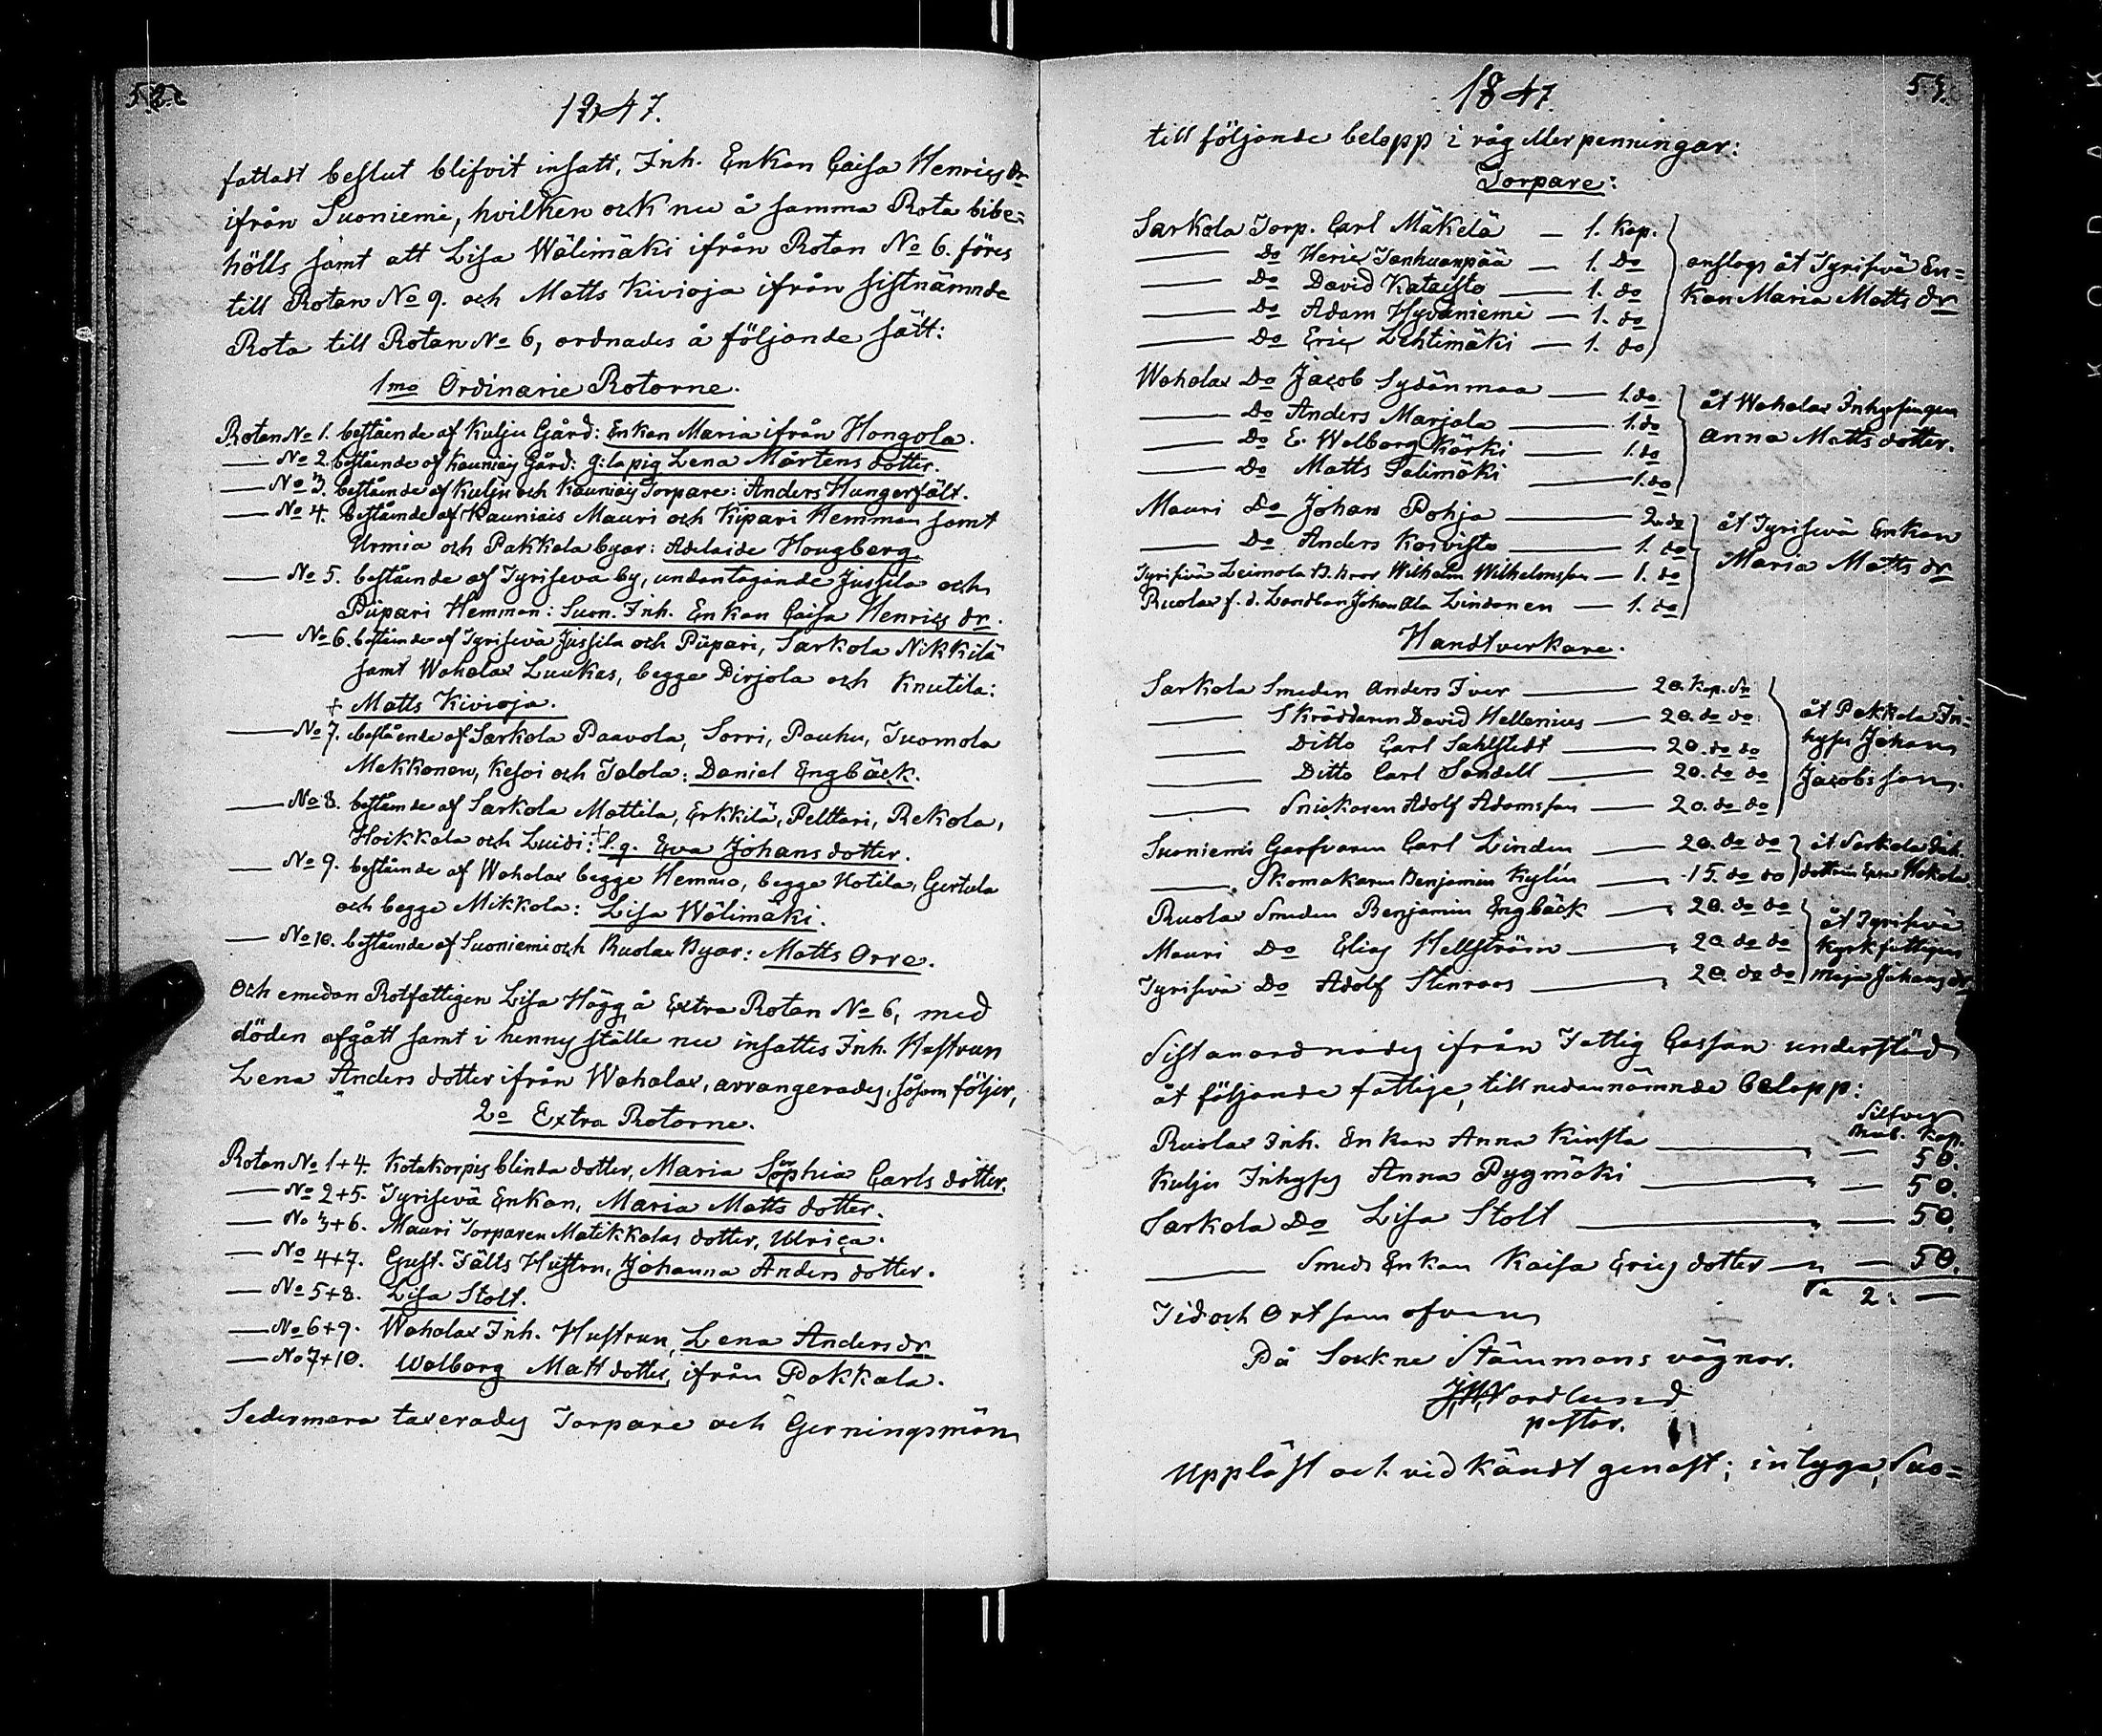 52.
1847.
fattadt beslut blifvit insatt, Inh. Enkan Caisa Henrics dr
ifrån Suoniemi, hvilken ock nu å samma Rota bibe=
hölls samt att Lisa Wälimäki ifrån Rotan No 6. föres
till Rotan No 9. och Matts Kivioja ifrån sistnämnde
Rota till Rotan No 6, ordnades å följande sätt:
1mo Ordinarie Rotorne.
Rotan No 1. bestående af Kulju Gård: Enkan Maria ifrån Hongola.
— No 2. bestående af Kauniais Gård: g:la pig. Lena Mårtens dotter.
— No 3. bestående af Kulju och Kauniais Torpare: Anders Hungerfält.
— No 4. bestående af Kauniais Mauri och Kipari Hemman samt
Urmia och Pakkala byar: Adelaide Hougberg
— No 5. bestående af Tyrisevä by, undantagande Jussila och
Piipari Hemman: Suon. Inh. Enkan Caisa Henrics dr.
— No 6. bestående af Tyrisevä Jussila och Piipari, Sarkola Nikkilä
samt Wahalax Luukas, begge Pirjola och Knutila:
† Matts Kivioja.
— No 7. bestående af Sarkola Paavola, Sorri, Pauhu, Tuomola
Mekkonen, Kesoi och Talola: Daniel Engbäck.
— No 8. bestående af Sarkola Mattila, Erkkilä, Pelttari, Rekola,
Hoikkala och Luidi: † l.q. Eva Johans dotter.
— No 9. bestående af Wahalax begge Hemmo, begge Hotila, Gertula
och begge Mikkola: Lisa Wälimäki.
— No 10. bestående af Suoniemi och Ruolax Byar: Matts Orre.
Och emedan Rotfattigen Lisa Hägg å Extra Rotan No 6, med
döden afgått samt i hennes ställe nu insattes Inh. Hustrun
Lena Anders dotter ifrån Wahalax, arrangerades, såsom följer,
2o Extra Rotorne.
Rotan No 1+4. Kotakorpis blinda dotter, Maria Sophia Carls dotter.
— No 2+5. Tyrisevä Enkan, Maria Matts dotter.
— No 3+6. Mauri Torparen Matikkalas dotter, Ulrica.
— No 4+7. Gust. Fälts Hustru, Johanna Anders dotter.
— No 5+8. Lisa Stolt.
— No 6+9. Wahalax Inh. Hustrun, Lena Anders dr
— No 7+10. Walborg Matt dotter, ifrån Pakkala.
Sedermera taxerades Torpare och Gerningsmän
53.
1847.
till följande belopp i råg eller penningar:
Torpare:
Sarkola Torp. Carl Mäkelä — 1. kap.
— Do Heric Tanhuanpää — 1. do
— Do David Kataisto — 1. do
— Do Adam Hyväniemi — 1. do
— Do Eric Lehtimäki — 1. do
anslogs åt Tyrisevä En=
kan Maria Matts dr
Wahalax Do Jacob Sydänmaa — 1. do
— Do Anders Marjala — 1. do
— Do E. Walborg Kärki — 1. do
— Do Matts Salimäki — 1. do
åt Wahalax Inhysingen
Anna Matts dotter.
Mauri Do Johan Pohja — 2. do
— Do Anders Koivisto — 1. do
Tyrisevä Leimola B. bror Wilhelm Wilhelmsson — 1. do
Ruolax f. d. Landbon Johan Ala Lindonen — 1. do
åt Tyrisevä Enkan
Maria Matts dr
Handtverkare.
Sarkola Smeden Anders Iver — 20. kop. Sr
— Skräddaren David Hellenius — 20. do do
— Ditto Carl Sahlstedt — 20. do do
— Ditto Carl Sandell — 20. do do
— Snickaren Adolf Adamsson — 20. do do
åt Pakkala In-
hyses Johan
Jacobsson.
Suoniemi Garfvaren Carl Linden — 20. do do
— Skomakaren Benjamin Kylin — 15. do do
åt Sarkola Inh.
dottren Eva Hokola.
Ruolax Smeden Benjamin Engbäck — 20. do do
Mauri Do Elias Hellström — 20. do do
Tyrisevä Do Adolf Stenroos — 20. do do
åt Tyrisevä
kyrkfattigen
Maja Johans dr
Sist anordnades ifrån Fattig Cassan understöd
åt följande fattige, till nedannämnde belopp:
Silfver
Rub. Kop.
Ruolax Inh. Enkan Anna Kinsta — " — 50.
Kulju Inhyses Anna Pygmäki — " — 50.
Sarkola Do Lisa Stolt — " — 50.
— Smeds Enkan Kaisa Erics dotter — " — 50.
Sa 2: —
Tid och Ort som ofvan
På Sockne Stämmans vägnar.
J. W. Nordlund
pastor.
Uppläst och vidkändt genast; intyga, Suo=